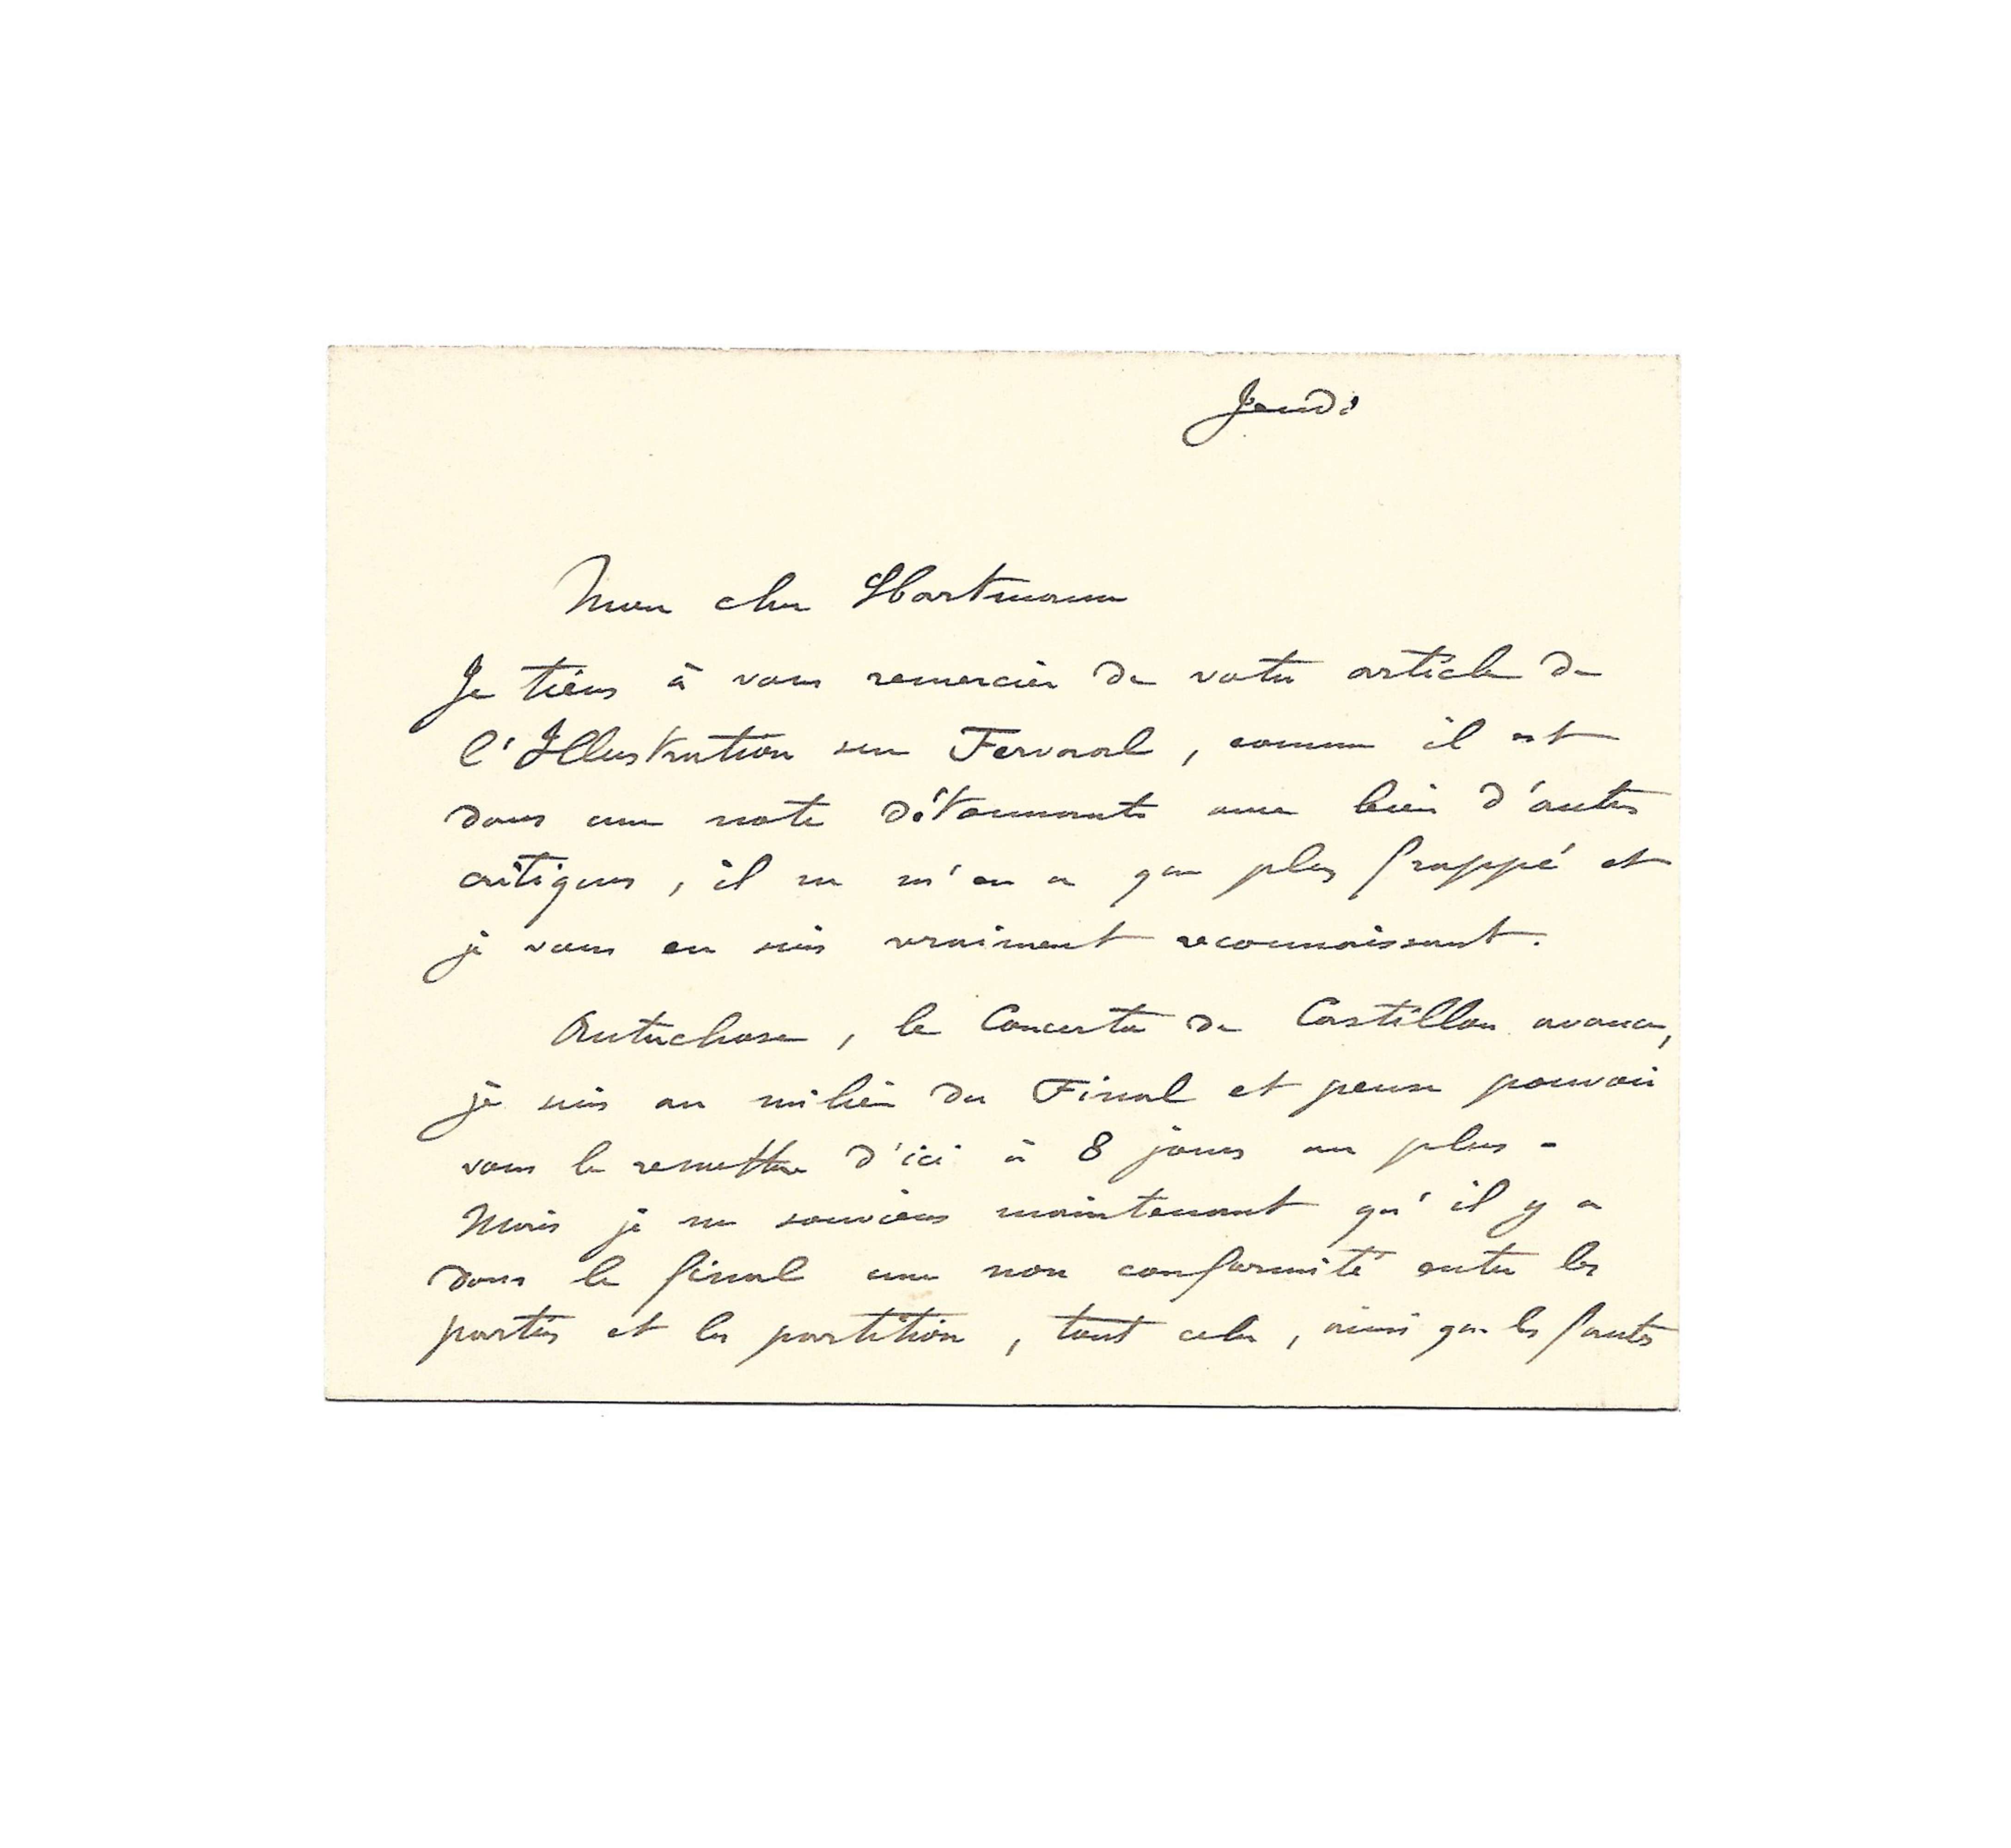 Jeudi
Mon cher Hartmann
Je tiens à vous remercier de votre article de
l'Illustration sur Fervaal, comme il est
dans une note détonnante avec bien d'autres
critiques, il ne m'en a que plus frappé et
je vous en suis vraiment reconnaissant.
Autrechose, le Concerto de Castillon avance,
je suis au milieu du Final et pense pouvoir
vous le remettre d'ici à 8 jours au plus -
Mais je me souviens maintenant qu'il y a
dans le final une non conformité entre les
parties et la partition, tout cela, ainsi que les fautes